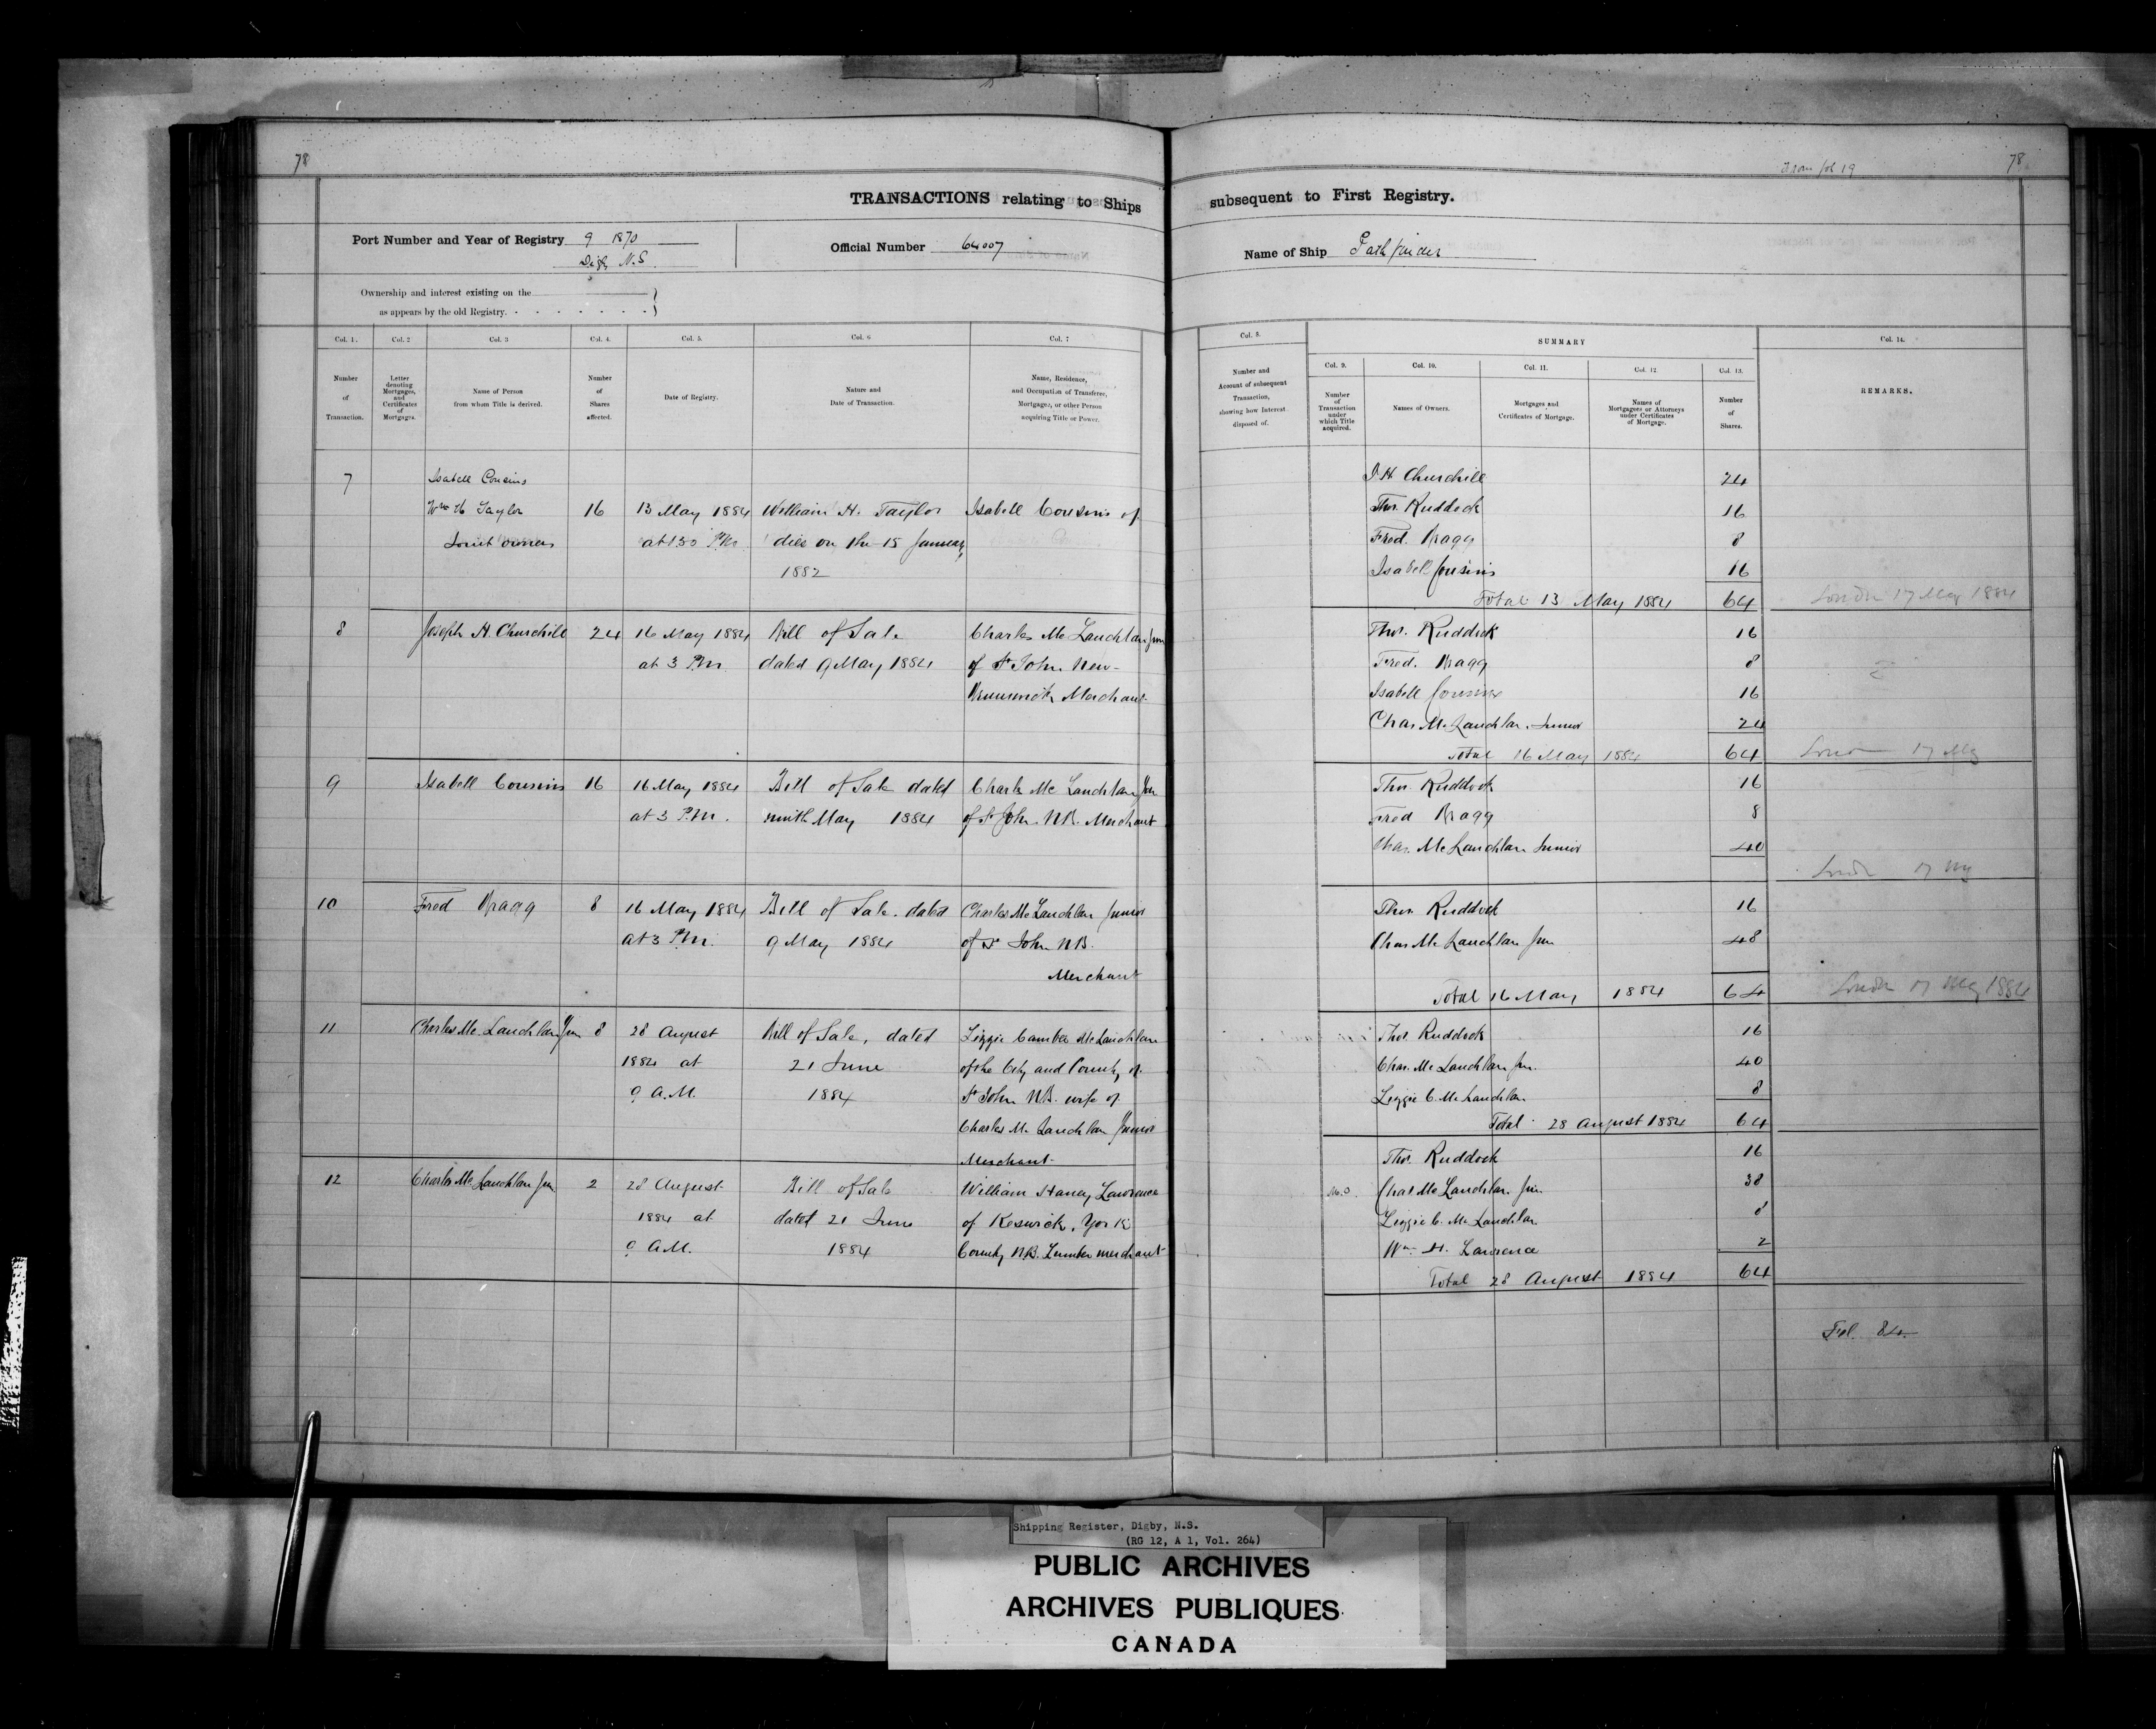 78
TRANSACTIONS relating to Ships
Port Number and Year of Registry 9 1870
Digby N.S.
Official Number 64007
Ownership and interest existing on the
as appears by the old Registry.
Col. 1.
Col. 2
Col. 3
Col. 4.
Col. 5.
Col. 6
Col. 7
Number of Transaction.
Letter denoting Mortgages, and Certificates of Mortgages.
Name of Person from whom Title is derived.
Number of Shares affected.
Date of Registry.
Nature and Date of Transaction.
Name, Residence, and Occupation of Transferee, Mortgagee, or other Person acquiring Title or Power.
7
Isabell Cousins
Wm H Taylor 16 13 May 1884 William H. Taylor Isabell Cousins of
Joint owners at 1.30 P.M. died on the 15 January
1882
8 Joseph H. Churchill 24 16 May 1884 Bill of Sale Charles McLauchlan Jun
at 3 P.M. dated 9 May 1884 of St John New-
Brunswick Merchant
9 Isabell Cousins 16 16 May 1884 Bill of Sale dated Charles McLauchlan Jun
at 3 P.M. ninth May 1884 of St John N.B. Merchant
10 Fred Bragg 8 16 May 1884 Bill of Sale dated Charles McLauchlan Junior
at 3 P.M. 9 May 1884 of St John N.B.
Merchant
11 Charles McLauchlan Jun 8 28 August Bill of Sale, dated Lizzie Camber McLauchlan
1884 at 21 June of the City and County of
9 A.M. 1884 St John N.B. wife of
Charles McLauchlan Junior
Merchant
12 Charles McLauchlan Jun 2 28 August Bill of Sale William Haney Lawrence
1884 at dated 21 June of Keswick, York
9 A.M. 1884 County N.B. Lumber merchant
From fol 19
78
subsequent to First Registry.
Name of Ship Pathfinder
Col. 8.
SUMMARY
Col. 14.
Col. 9.
Col. 10.
Col. 11.
Col. 12
Col. 13.
Number and Account of subsequent Transaction, showing how Interest disposed of.
Number of Transaction under which Title acquired.
Names of Owners.
Mortgages and Certificates of Mortgage.
Names of Mortgagees or Attorneys under Certificates of Mortgage.
Number of Shares.
REMARKS.
J H Churchill 24
Thos. Ruddock 16
Fred. Bragg 8
Isabell Cousins 16
Total 13 May 1884 64 London 17 May 1884
Thos. Ruddock 16
Fred. Bragg 8
Isabell Cousins 16
Chas. McLauchlan Junior 24
Total 16 May 1884 64 London 17 My
Thos. Ruddock 16
Fred Bragg 8
Chas. McLauchlan Junior 40
London 17 My
Thos. Ruddock 16
Chas McLauchlan Jun 48
Total 16 May 1884 64 London 17 May 1884
Thos. Ruddock 16
Chas. McLauchlan Jun. 40
Lizzie C. McLauchlan 8
Total 28 August 1884 64
Thos. Ruddock 16
Chas McLauchlan Jun. 38
Lizzie C. McLauchlan 8
Wm. H. Lawrence 2
Total 28 August 1884 64
Fol. 84
Shipping Register, Digby, N.S.
(RG 12, A 1, Vol. 264)
PUBLIC ARCHIVES
ARCHIVES PUBLIQUES
CANADA